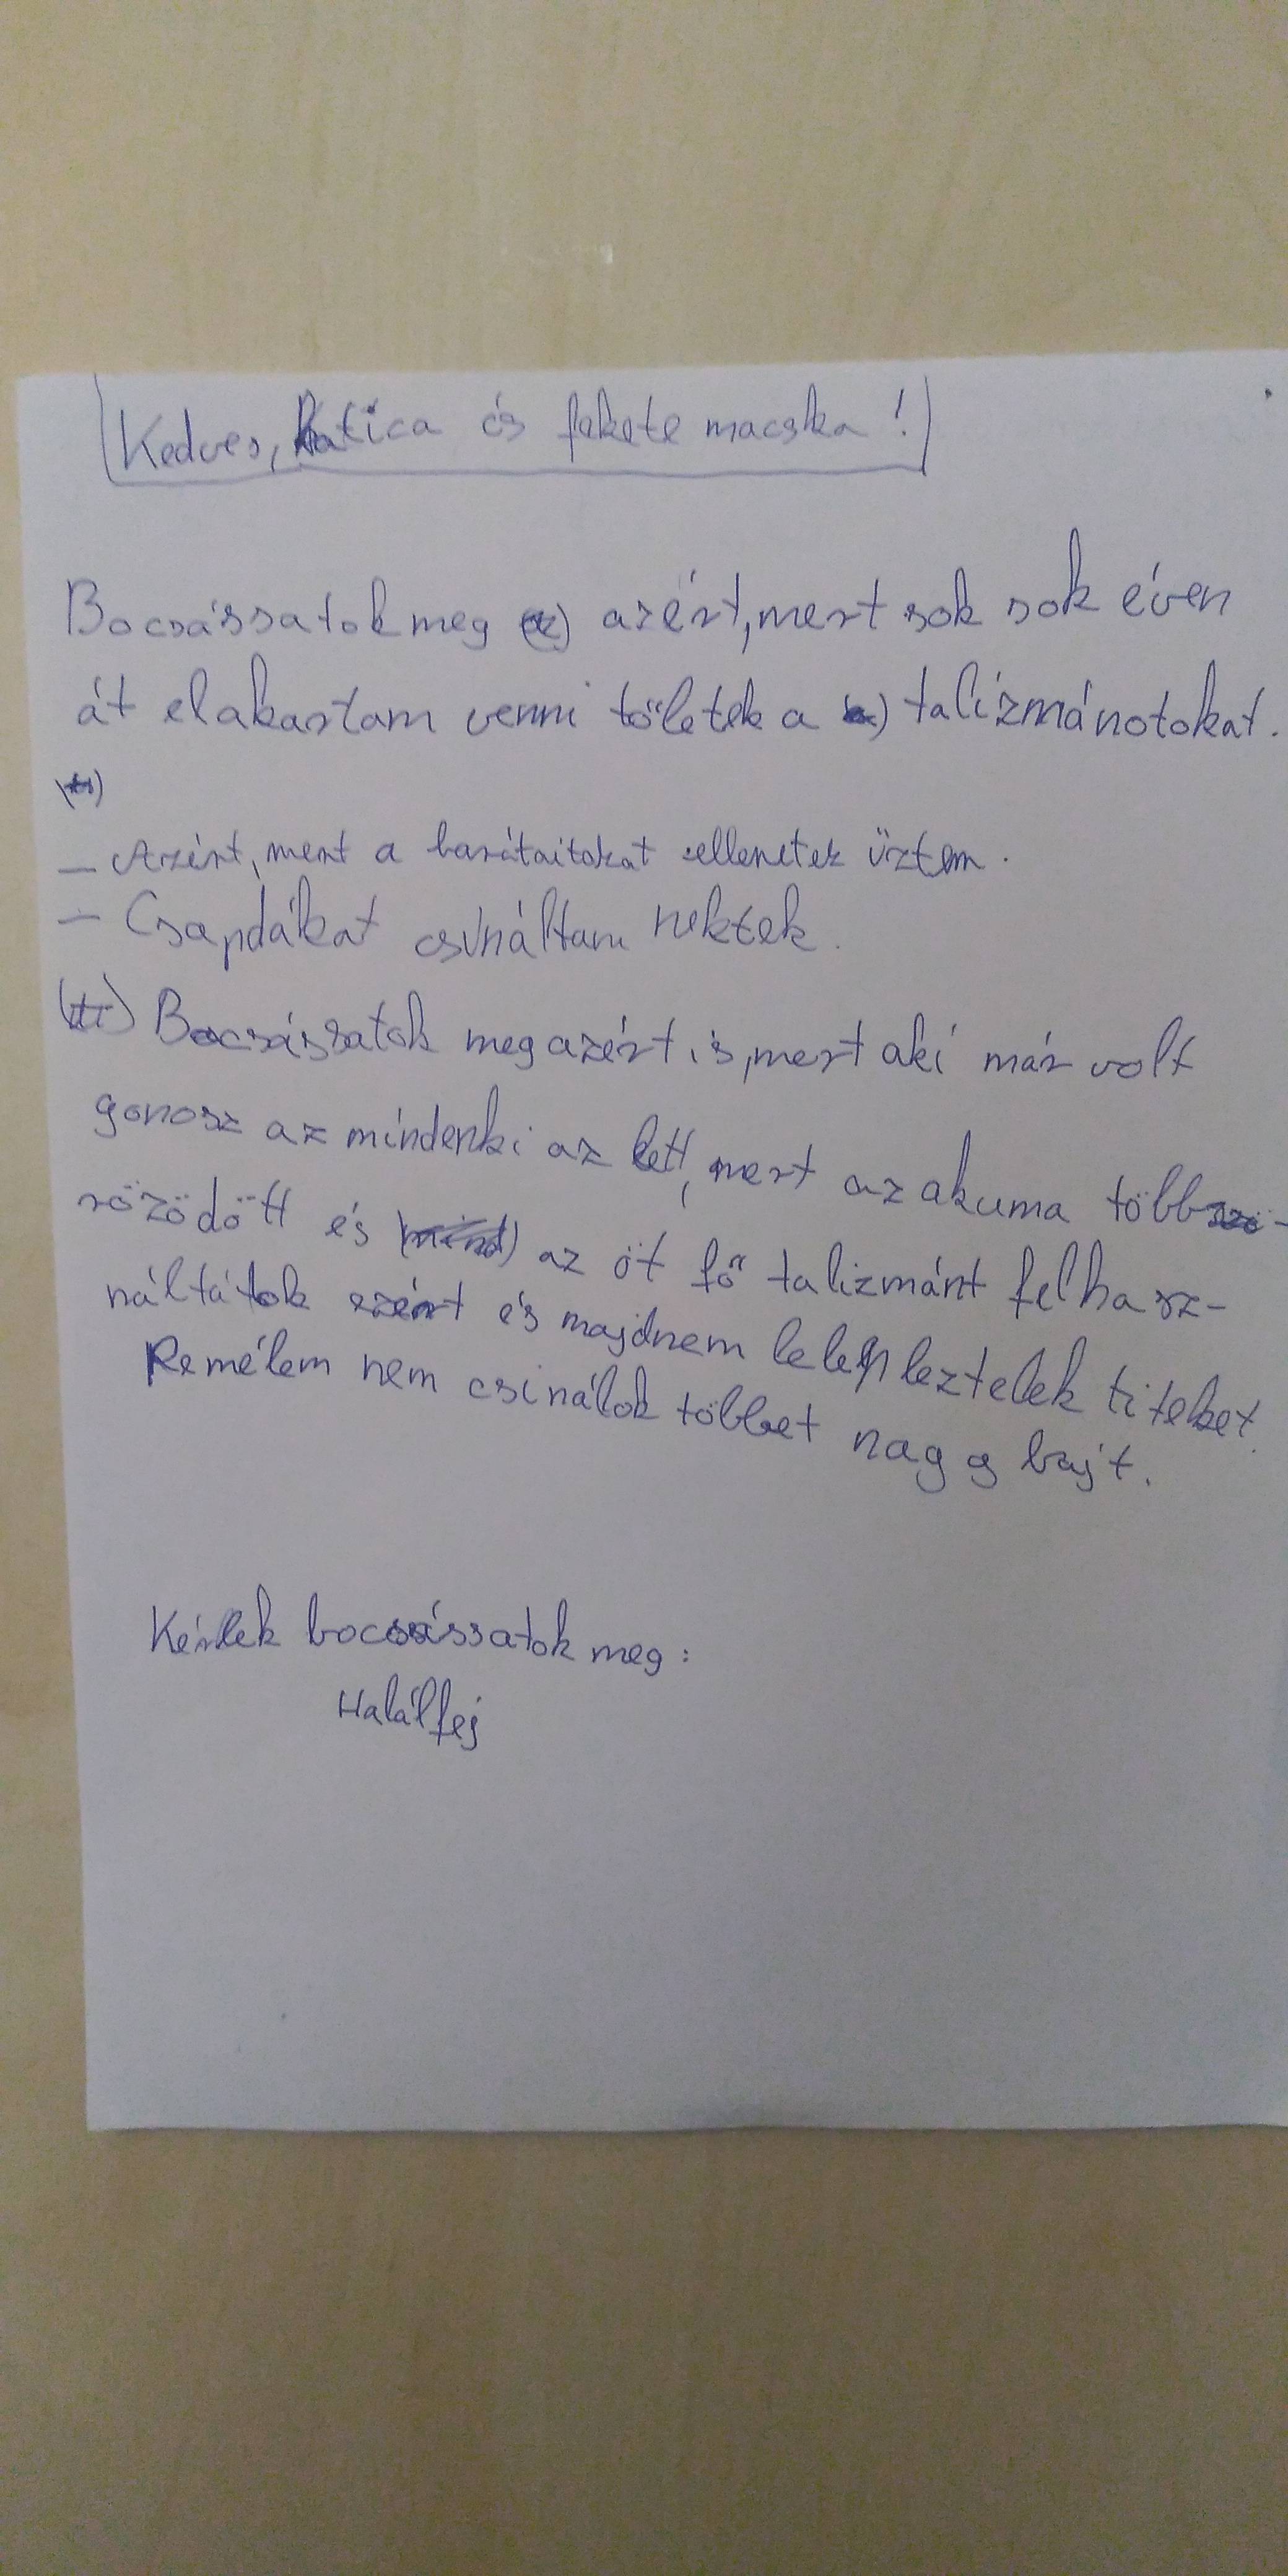 Kedves, Katica és fekete macska!
Bocsássatok meg azért, mert sok sok éven
át elakartam venni tőletek a talizmánotokat.
- Azért, mert a barátaitokat ellenetek űztem.
- Csapdákat csináltam nektek.
Bocsássatok meg azért is, mert aki már volt
gonosz az mindenki az lett, mert az akuma több
söződött és az öt fő talizmánt felhasz-
náltátok ezért és majdnem lelepleztelek titeket.
Remélem nem csinálok többet nagy bajt.
Kérlek bocsássatok meg:
Halálfej